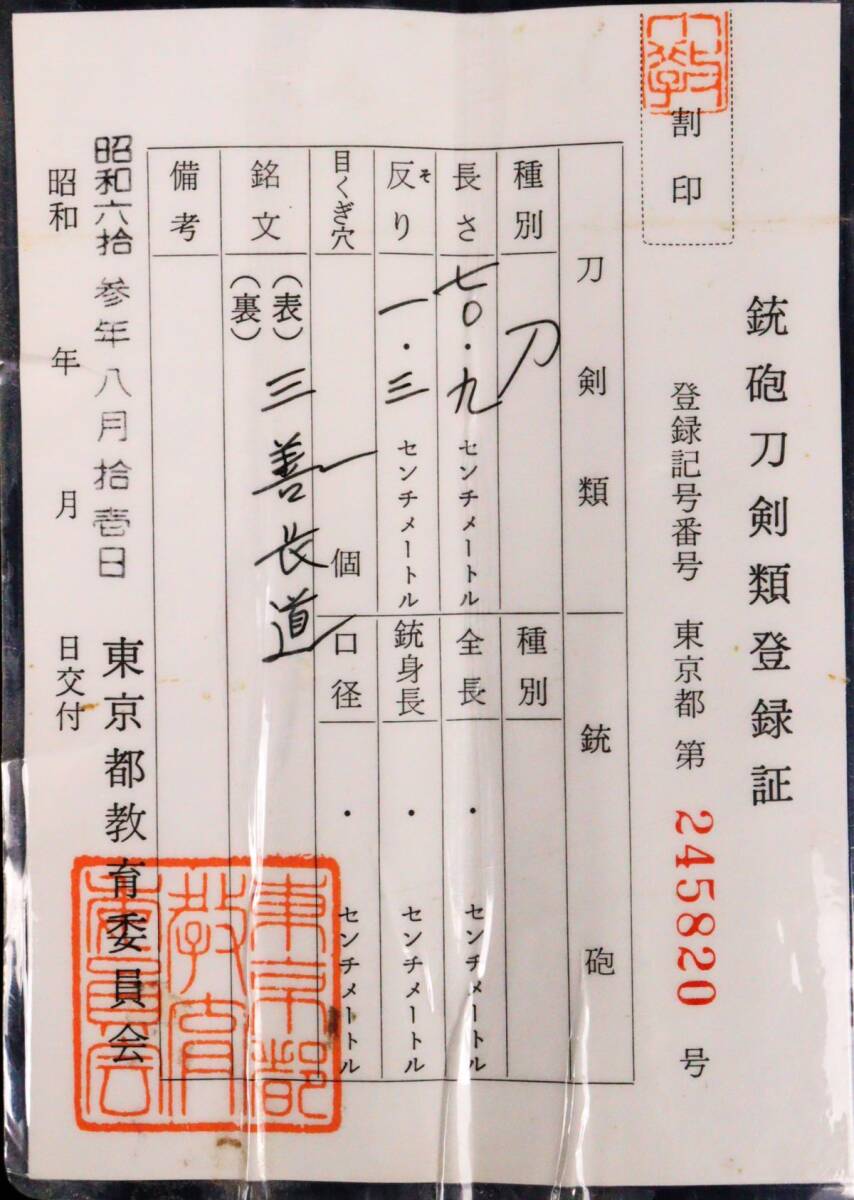 割印
銃砲刀剣類登録証
登録記号番号 東京都 第 245820 号
刀剣類
銃砲
種別 刀
種別
長さ 七〇・九 センチメートル
全長 ・ センチメートル
反り そ 一・三 センチメートル
銃身長 ・ センチメートル
目くぎ穴 一 個
口径 ・ センチメートル
銘文 (表) 三善長道
(裏)
備考
東京都教育委員会
昭和六拾参年八月拾壱日
昭和 年 月 日交付
東京都
教育
委員会